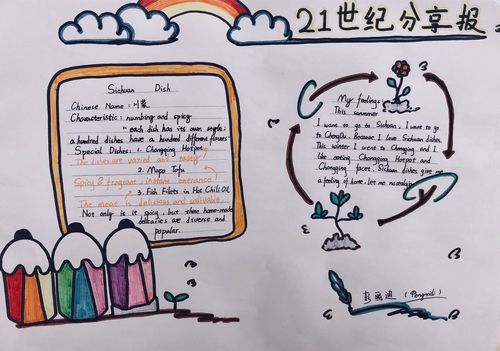 21世纪分享报
Sichuan Dish
Chinese Name: 川菜
Characteristic: numbing and spicy
"each dish has its own style;
a hundred dishes have a hundred different flavors"
Special Dishes: 1. Chongqing Hotpot
The dishes are varied and tasty
2. Mapo Tofu
Spicy & fragrant, instant entrance
3. Fish Filets in Hot Chili Oil
The meat is delicious and salivable.
Not only is it spicy, but these home-made
delicacies are diverse and
popular.
My feelings:
This summer
I want to go to Sichuan, I want to go
to ChengDu. Because I love Sichuan dishes.
This winter I went to Chongqing and I
like eating Chongqing Hotpot and
Chongqing facet. Sichuan dishes give me
a feeling of home, let me nostalgia.
(Pengxidi)